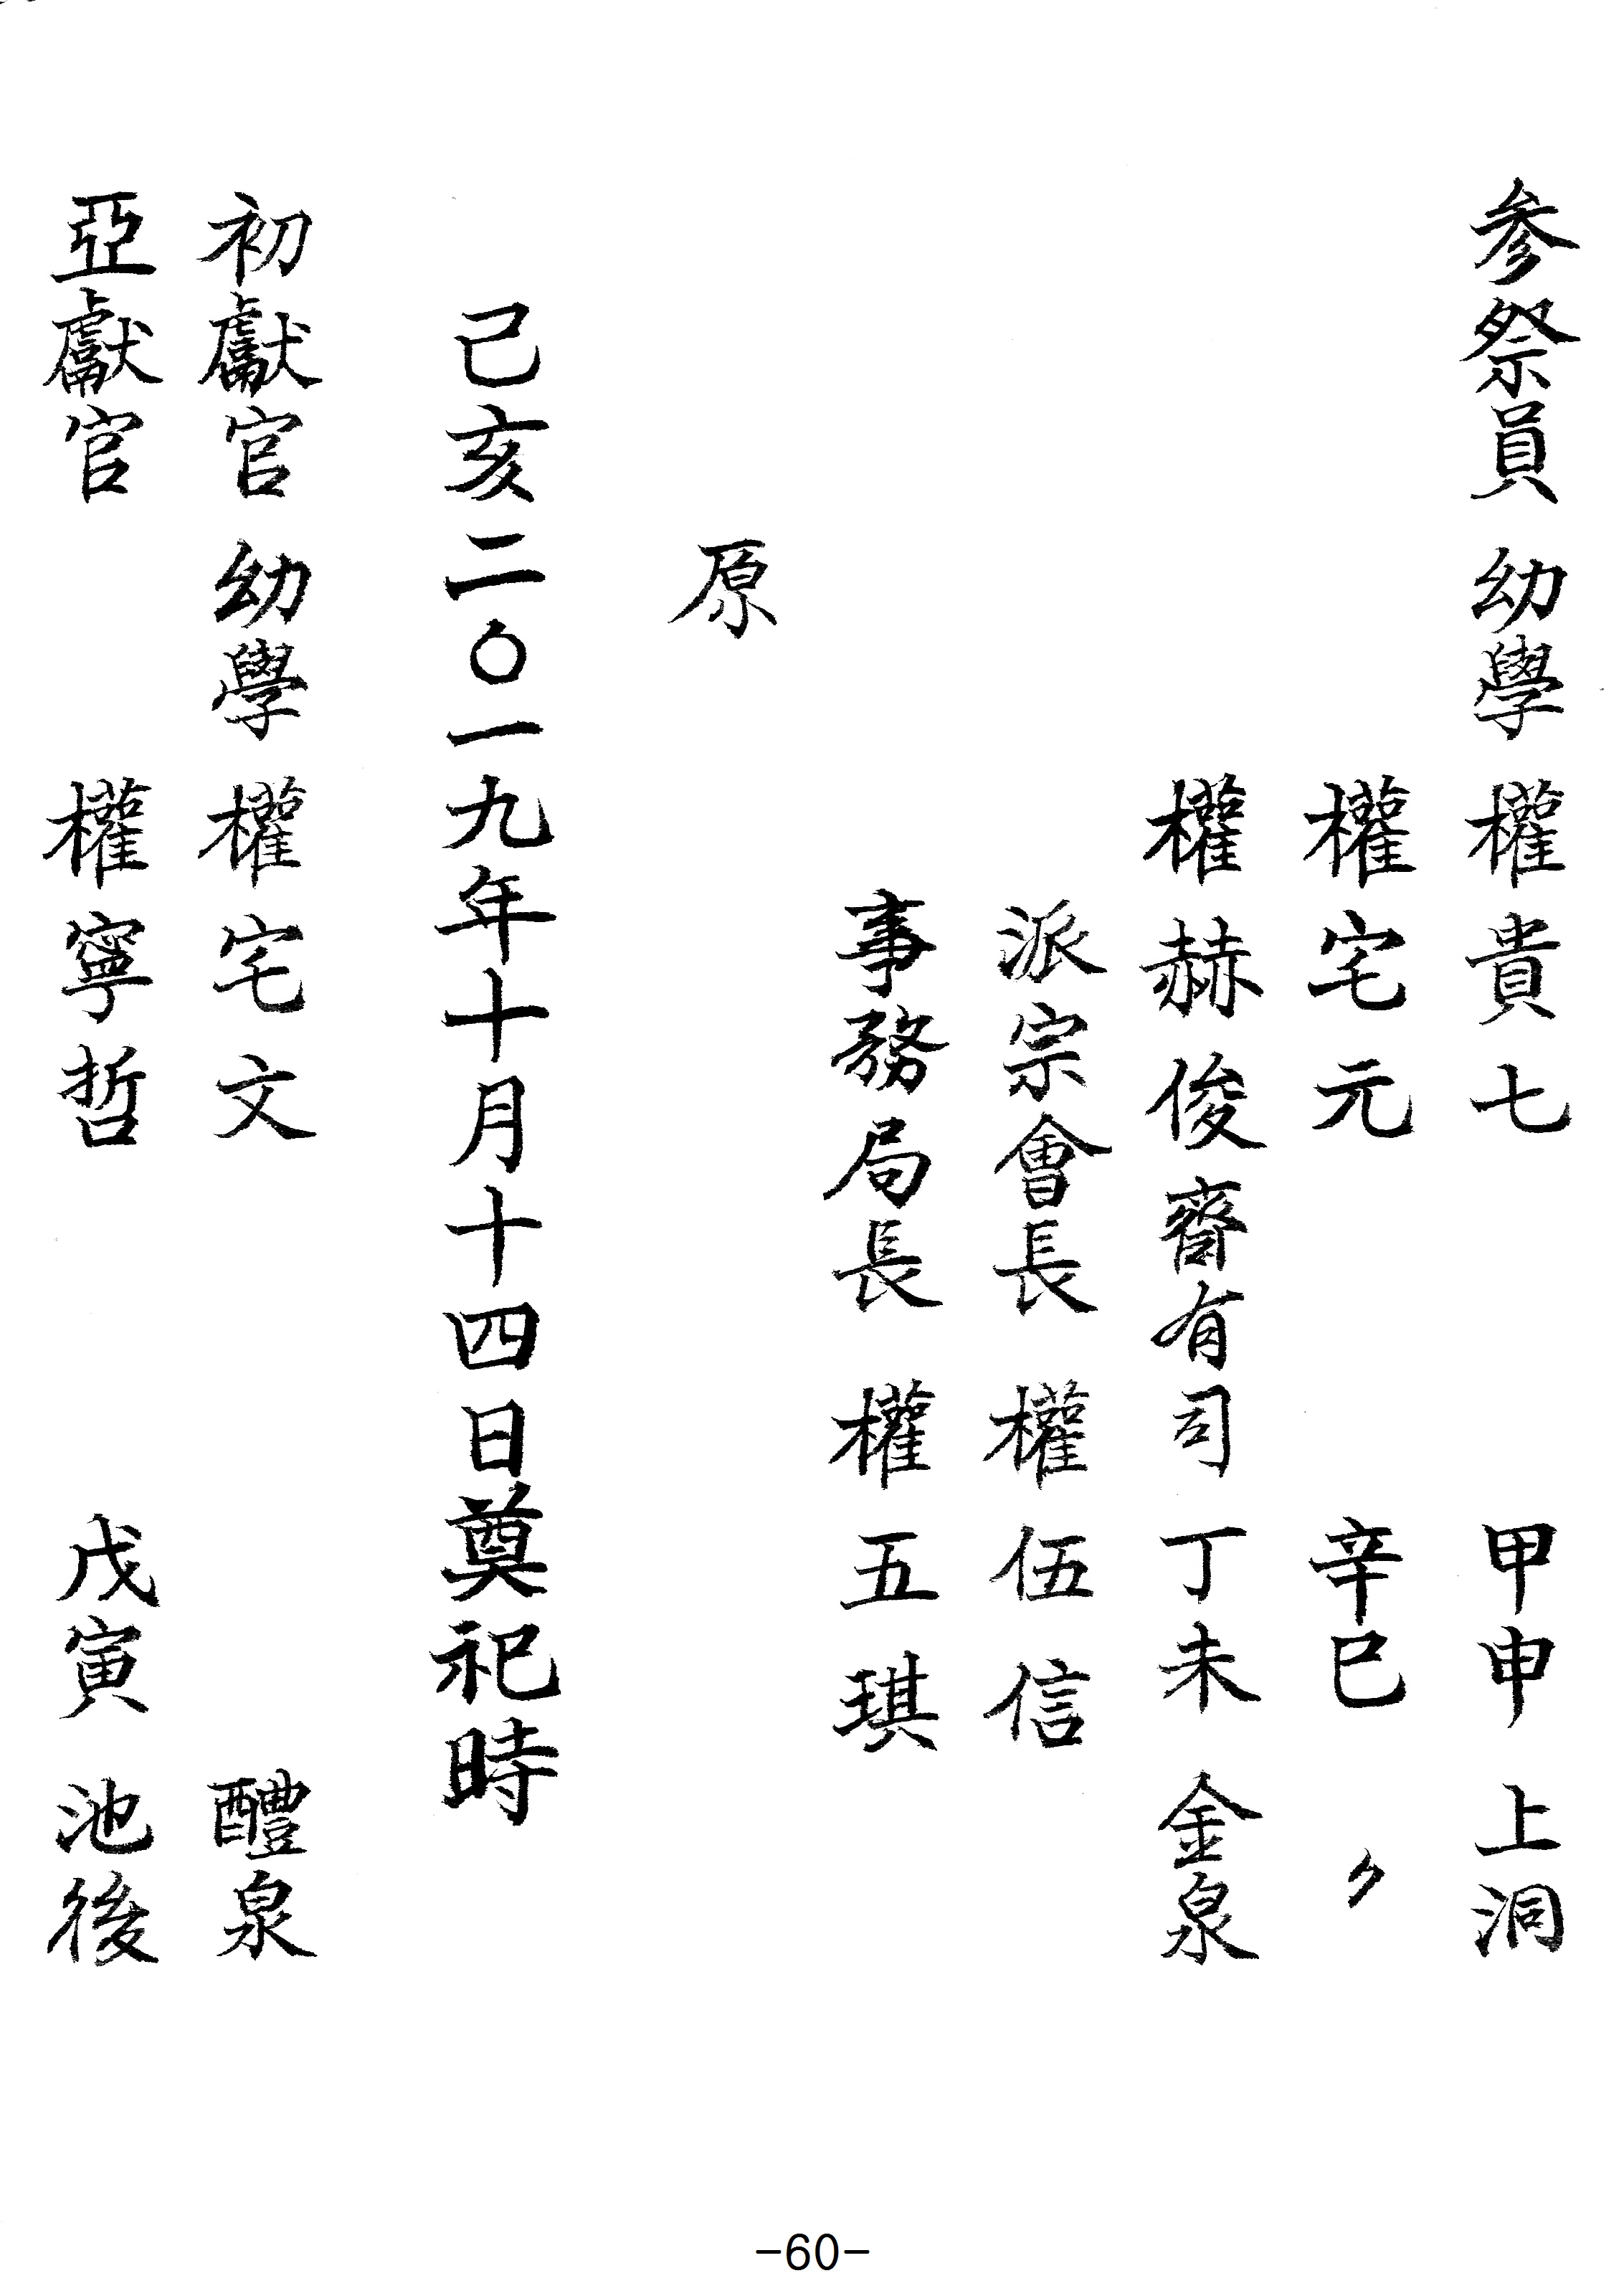 参祭員 幼學 權貴七 甲申 上洞
權宅元 辛巳 〃
權赫俊 齋有司 丁未 金泉
派宗會長 權伍信
事務局長 權五琪
原
己亥二〇一九年十月十四日奠祀時
初獻官 幼學 權宅文 醴泉
亞獻官 權寧哲 戊寅 池後
-60-